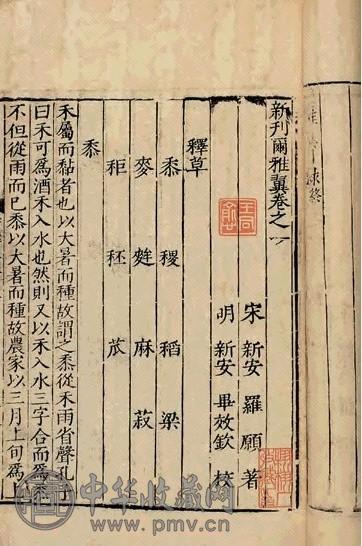 新刊爾雅翼卷之一
王同愈
宋 新安 羅願 著
明 新安 畢效欽 校
釋草
黍 稷 稻 粱
麥 麰 麻 菽
秬 秠 苽
黍
禾屬而黏者也以大暑而種故謂之黍從禾雨省聲孔子
曰禾可為酒禾入水也然則又以禾入水三字合而為
不但從雨而已黍以大暑而種故農家以三月上旬為上
中华收藏网
www.pmv.cn